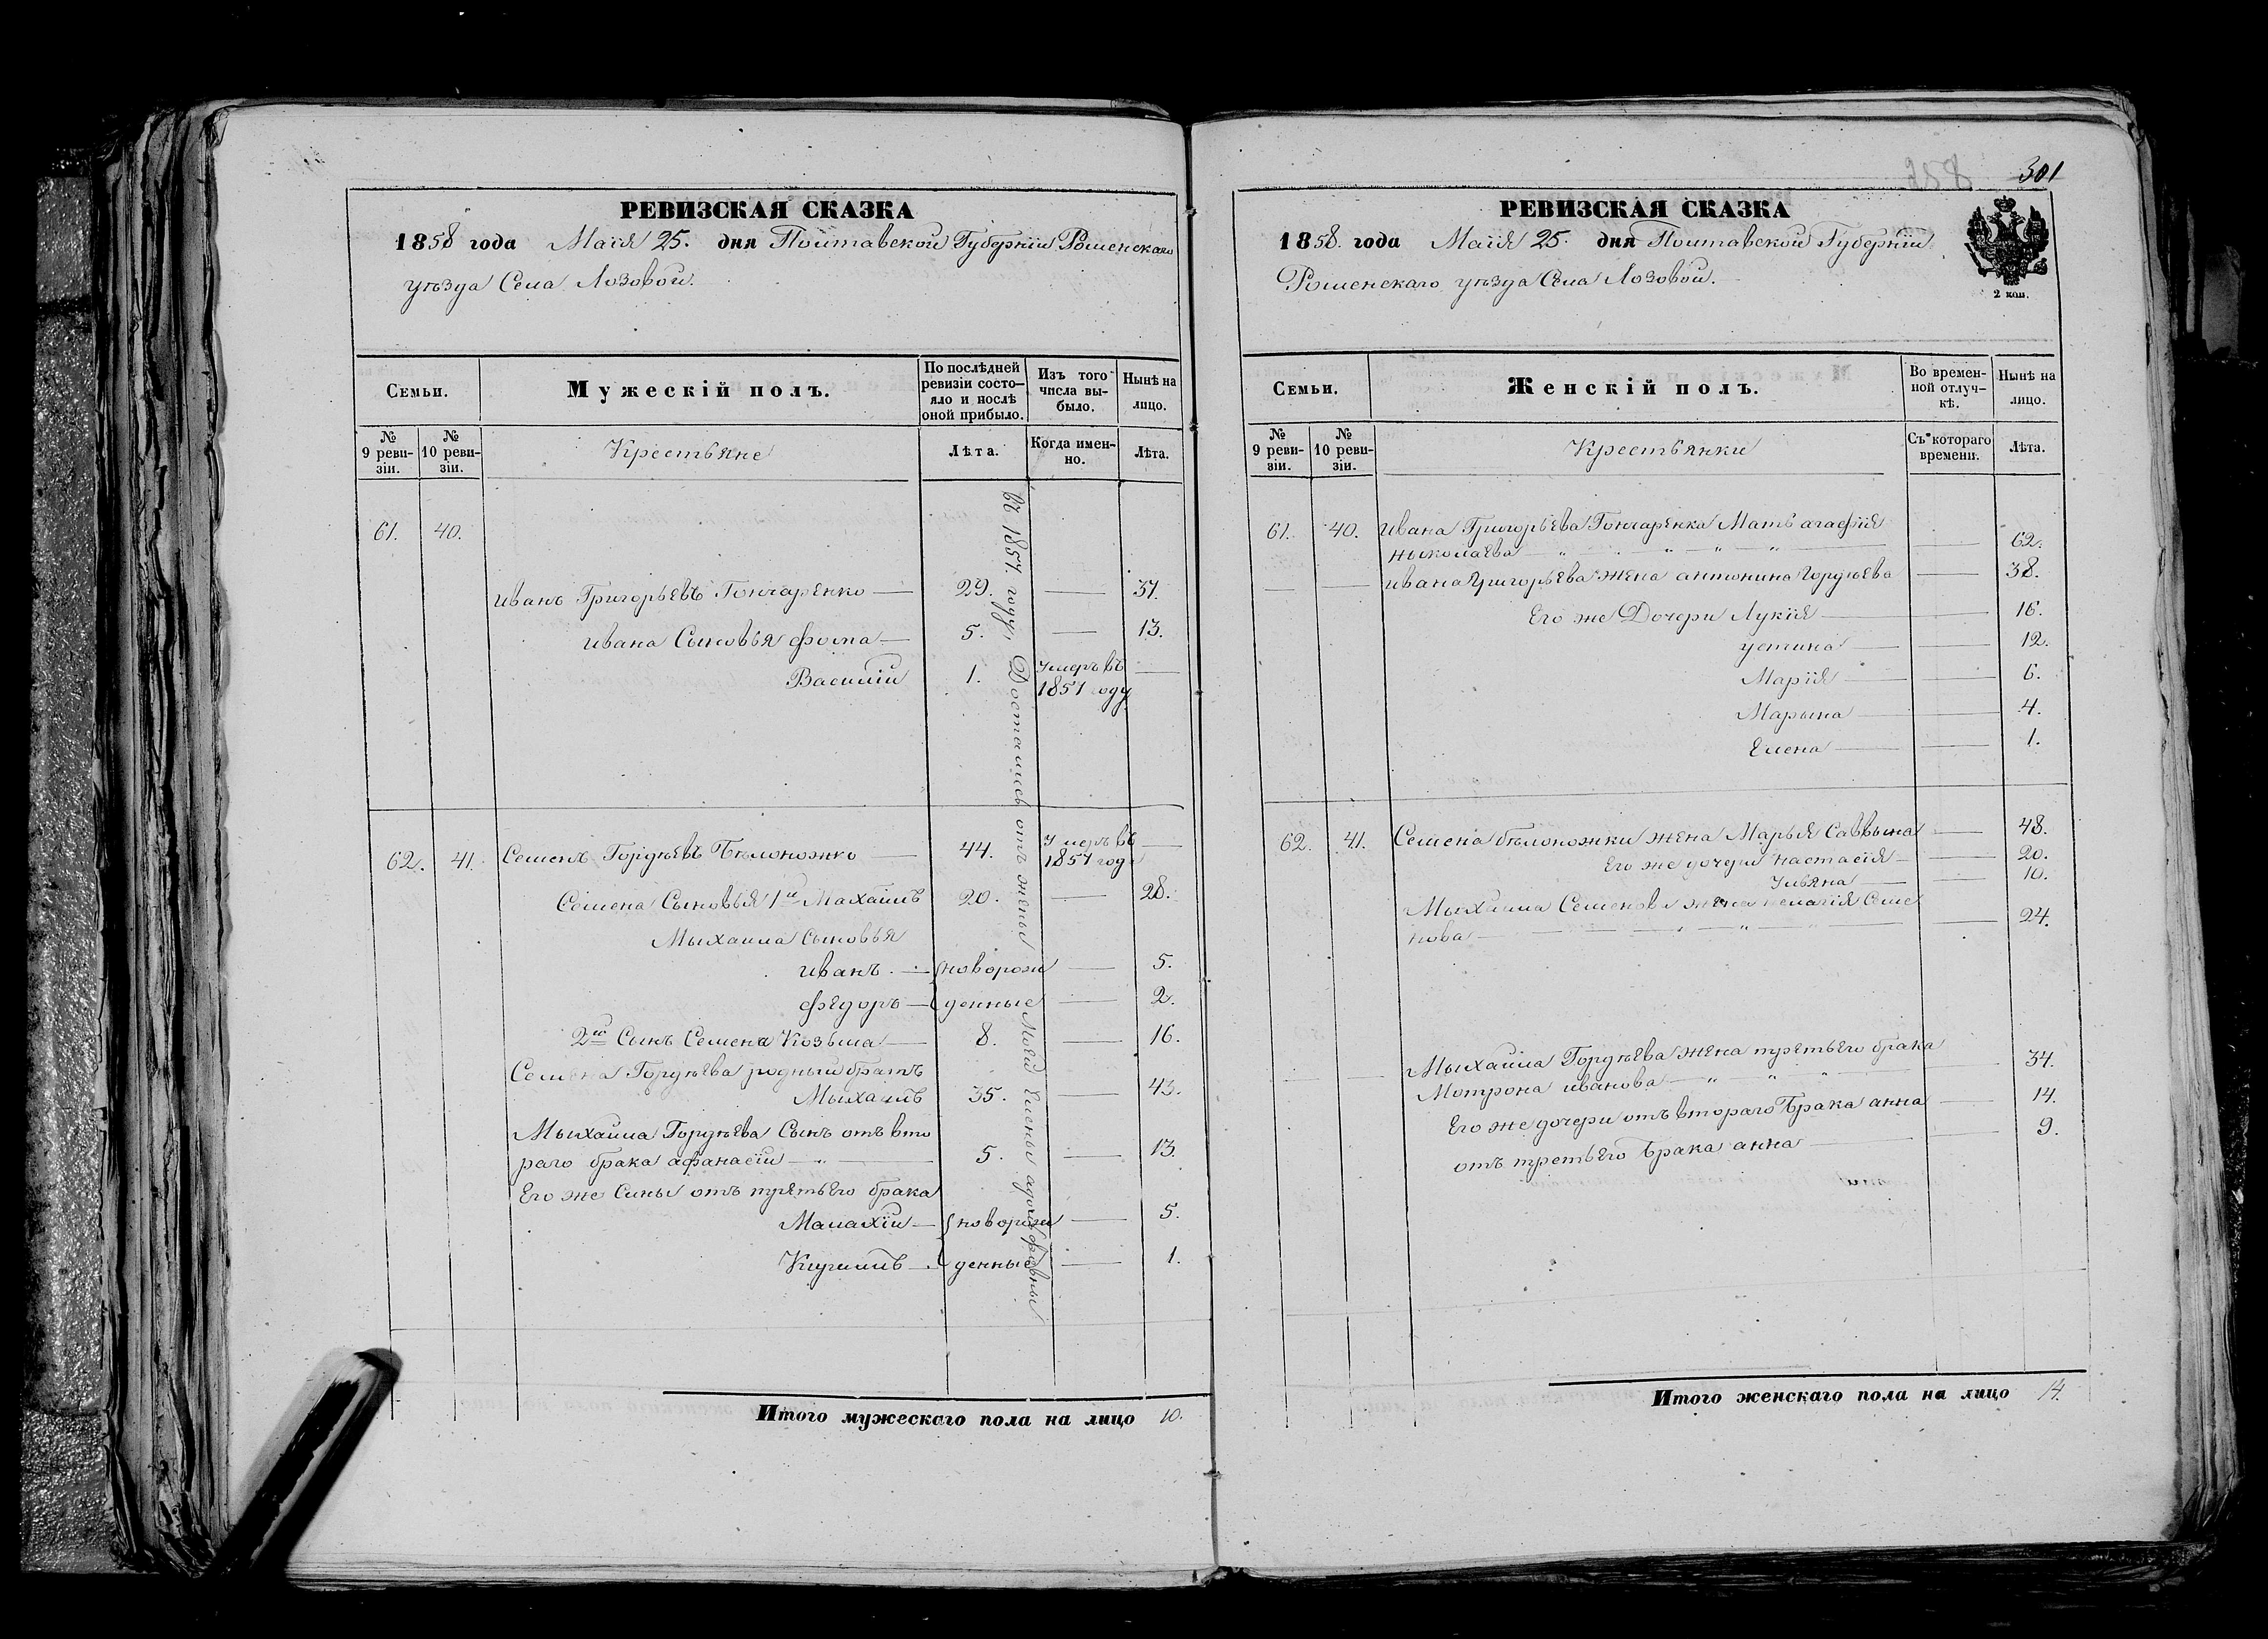 РЕВИЗСКАЯ СКАЗКА
1858 года Маія 25. дня Полтавской Губерніи Роменскаго
уѣзда Села Лозовой.
Семьи.
Мужескій полъ.
По послѣдней ревизіи состояло и послѣ оной прибыло.
Изъ того числа выбыло.
Нынѣ на лицо.
№ 9 ревизіи.
№ 10 ревизіи.
Крестьяне
Лѣта.
Когда именно.
Лѣта.
61. 40.
Иванъ Григорьевъ Гончаренко — 29. — 37.
Ивана Сыновья Фома — 5. — 13.
Василій 1. Умеръ въ 1857 году —
62. 41. Семенъ Гордѣевъ Бѣлоножко — 44. Умеръ въ 1857 году —
Семена Сыновья 1й Махаилъ 20. — 28.
Мыхаила Сыновья
Иванъ — новорож — 5.
Федоръ — денные — 2.
2й Сынъ Семена Козьма — 8. — 16.
Семена Гордѣева родный братъ
Мыхаилъ 35. — 43.
Мыхаила Гордѣева Сынъ отъ вто
раго брака Афанасій — 5. — 13.
Его же Сины отъ третьего брака
Малахій — новорож — 5.
Кирилъ — денные — 1.
въ 1857. году, Достались отъ жены Моей Елены
Итого мужескаго пола на лицо 10.
301
258
РЕВИЗСКАЯ СКАЗКА
1858. года Маія 25. дня Полтавской Губерніи
Роменскаго уѣзда Села Лозовой.
2 коп.
Семьи.
Женскій полъ.
Во временной отлучкѣ.
Нынѣ на лицо.
№ 9 ревизіи.
№ 10 ревизіи.
Крестьянки
Съ котораго времени.
Лѣта.
61. 40. Ивана Григорьева Гончаренка Мать Агафія
Ныколаева — " — " — " — " — 62.
— — Ивана Григорьева жена Антонина Гордѣева — 38.
Его же Дочери Лукія — 16.
Устина — 12.
Марія — 6.
Марына — 4.
Елена — 1.
62. 41. Семена Бѣлоножки жена Марья Саввына — 48.
Его же дочери Настасія — 20.
Ульяна — 10.
Мыхаила Семенова жена Пелагія Семе
нова — " — " — 24.
Мыхаила Гордѣева жена третьего брака
Мотрона Иванова — " — " — " 34.
Его же дочери отъ втораго брака Анна — 14.
отъ третьего брака Анна — 9.
Итого женскаго пола на лицо 14.